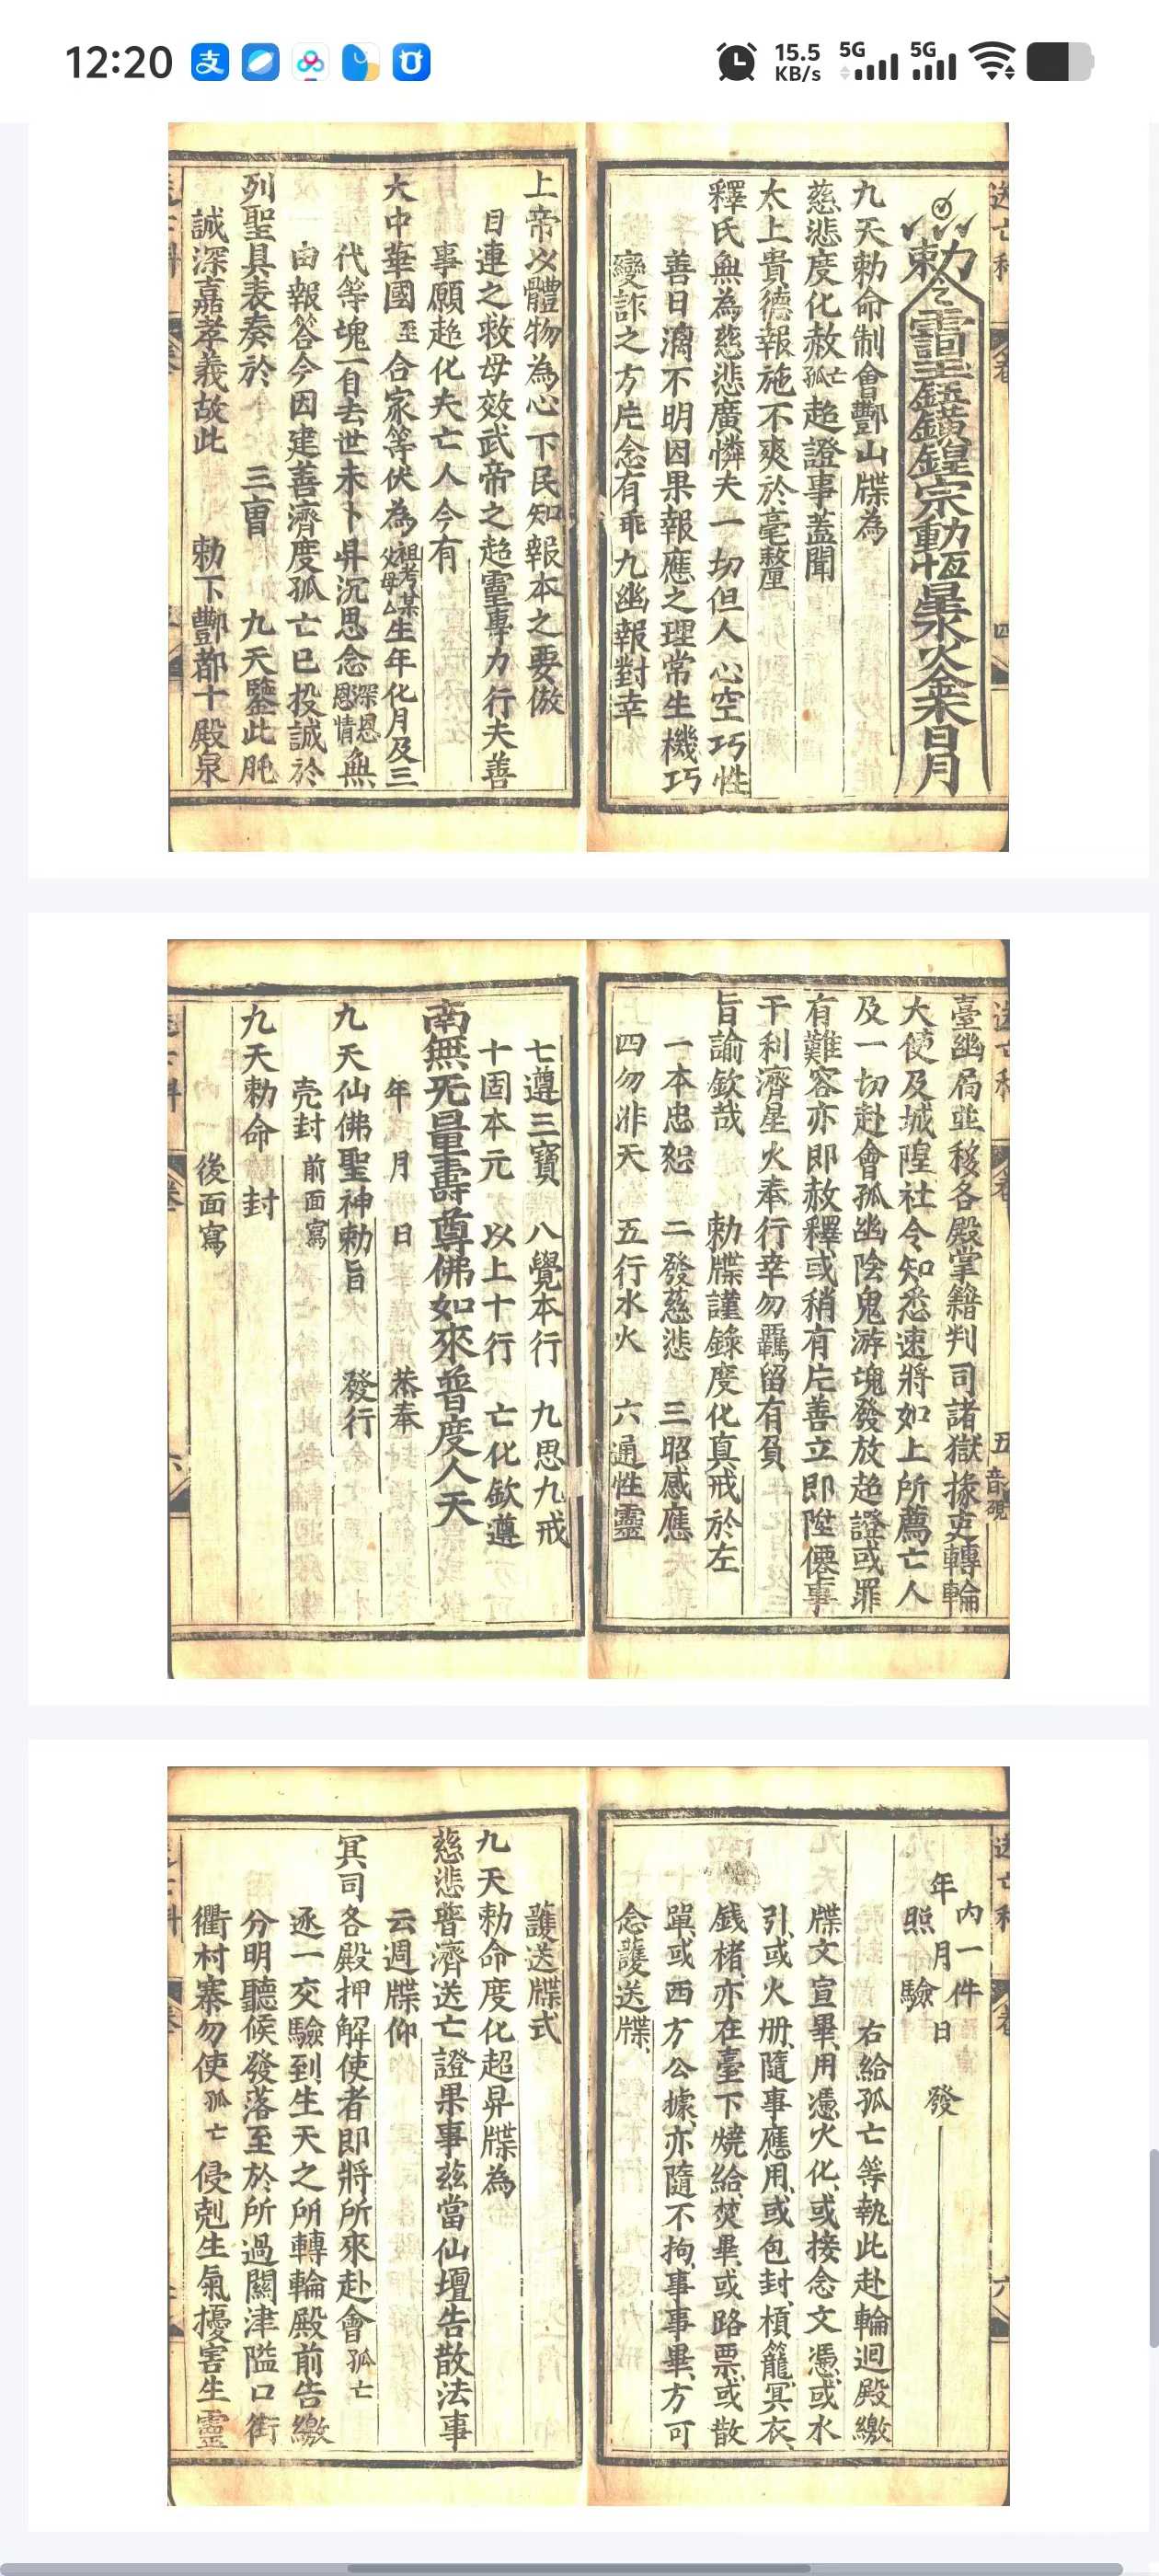 12:20
15.5 KB/s
5G
5G
九天勅命制會酆山牒為
慈悲度化赦孤亡超證事蓋聞
太上貴德報施不爽於毫釐
釋氏無為慈悲廣憐夫一切但人心空巧性
善日漓不明因果報應之理常生機巧
變詐之方片念有乖九幽報對幸
上帝以體物為心下民知報本之要倣
目連之救母效武帝之超靈專力行夫善
事願超化夫亡人今有
大中華國至合家等伏為祖考某父母厶生年化月及三
代等塊一自去世未卜昇沉思念深恩慇情無
由報答今因建善濟度孤亡巳投誠於
列聖具表奏於三曹九天鑒此肫
誠深嘉孝義故此勅下酆都十殿泉
臺幽局並移各殿掌籍判司諸獄掾吏轉輪
大使及城隍社令知悉速將如上所薦亡人
及一切赴會孤幽陰鬼游塊發放超證或罪
有難容亦即赦釋或稍有片善立即陞僊事
干利濟星火奉行幸勿羈留有負
旨諭欽哉勅牒謹錄度化真戒於左
一本忠恕二發慈悲三昭感應
四勿非天五行水火六通性靈
七遵三寶八覺本行九思九戒
十固本元以上十行亡化欽遵
南無无量壽尊佛如來普度人天
年月日恭奉
九天仙佛聖神勅旨發行
壳封前面寫
九天勅命封
後面寫
內一件
年月日發
照驗
右給孤亡等執此赴輪迴殿繳
牒文宣畢、用憑火化、或接念文憑、或水
引、或火册、隨事應用、或包封、槓籠、冥衣、
錢楮、亦在臺下燒給、焚畢、或路票、或散
單、或西方公據、亦隨不拘、事事畢、方可
念護送牒、
護送牒式
九天勅命度化超昇牒為
慈悲普濟送亡證果事茲當仙壇告散法事
云週牒仰
冥司各殿押解使者即將所來赴會孤亡
逐一交驗到生天之所轉輪殿前告繳
分明聽候發落至於所過關津隘口街
衢村寨勿使孤亡侵剋生氣擾害生靈